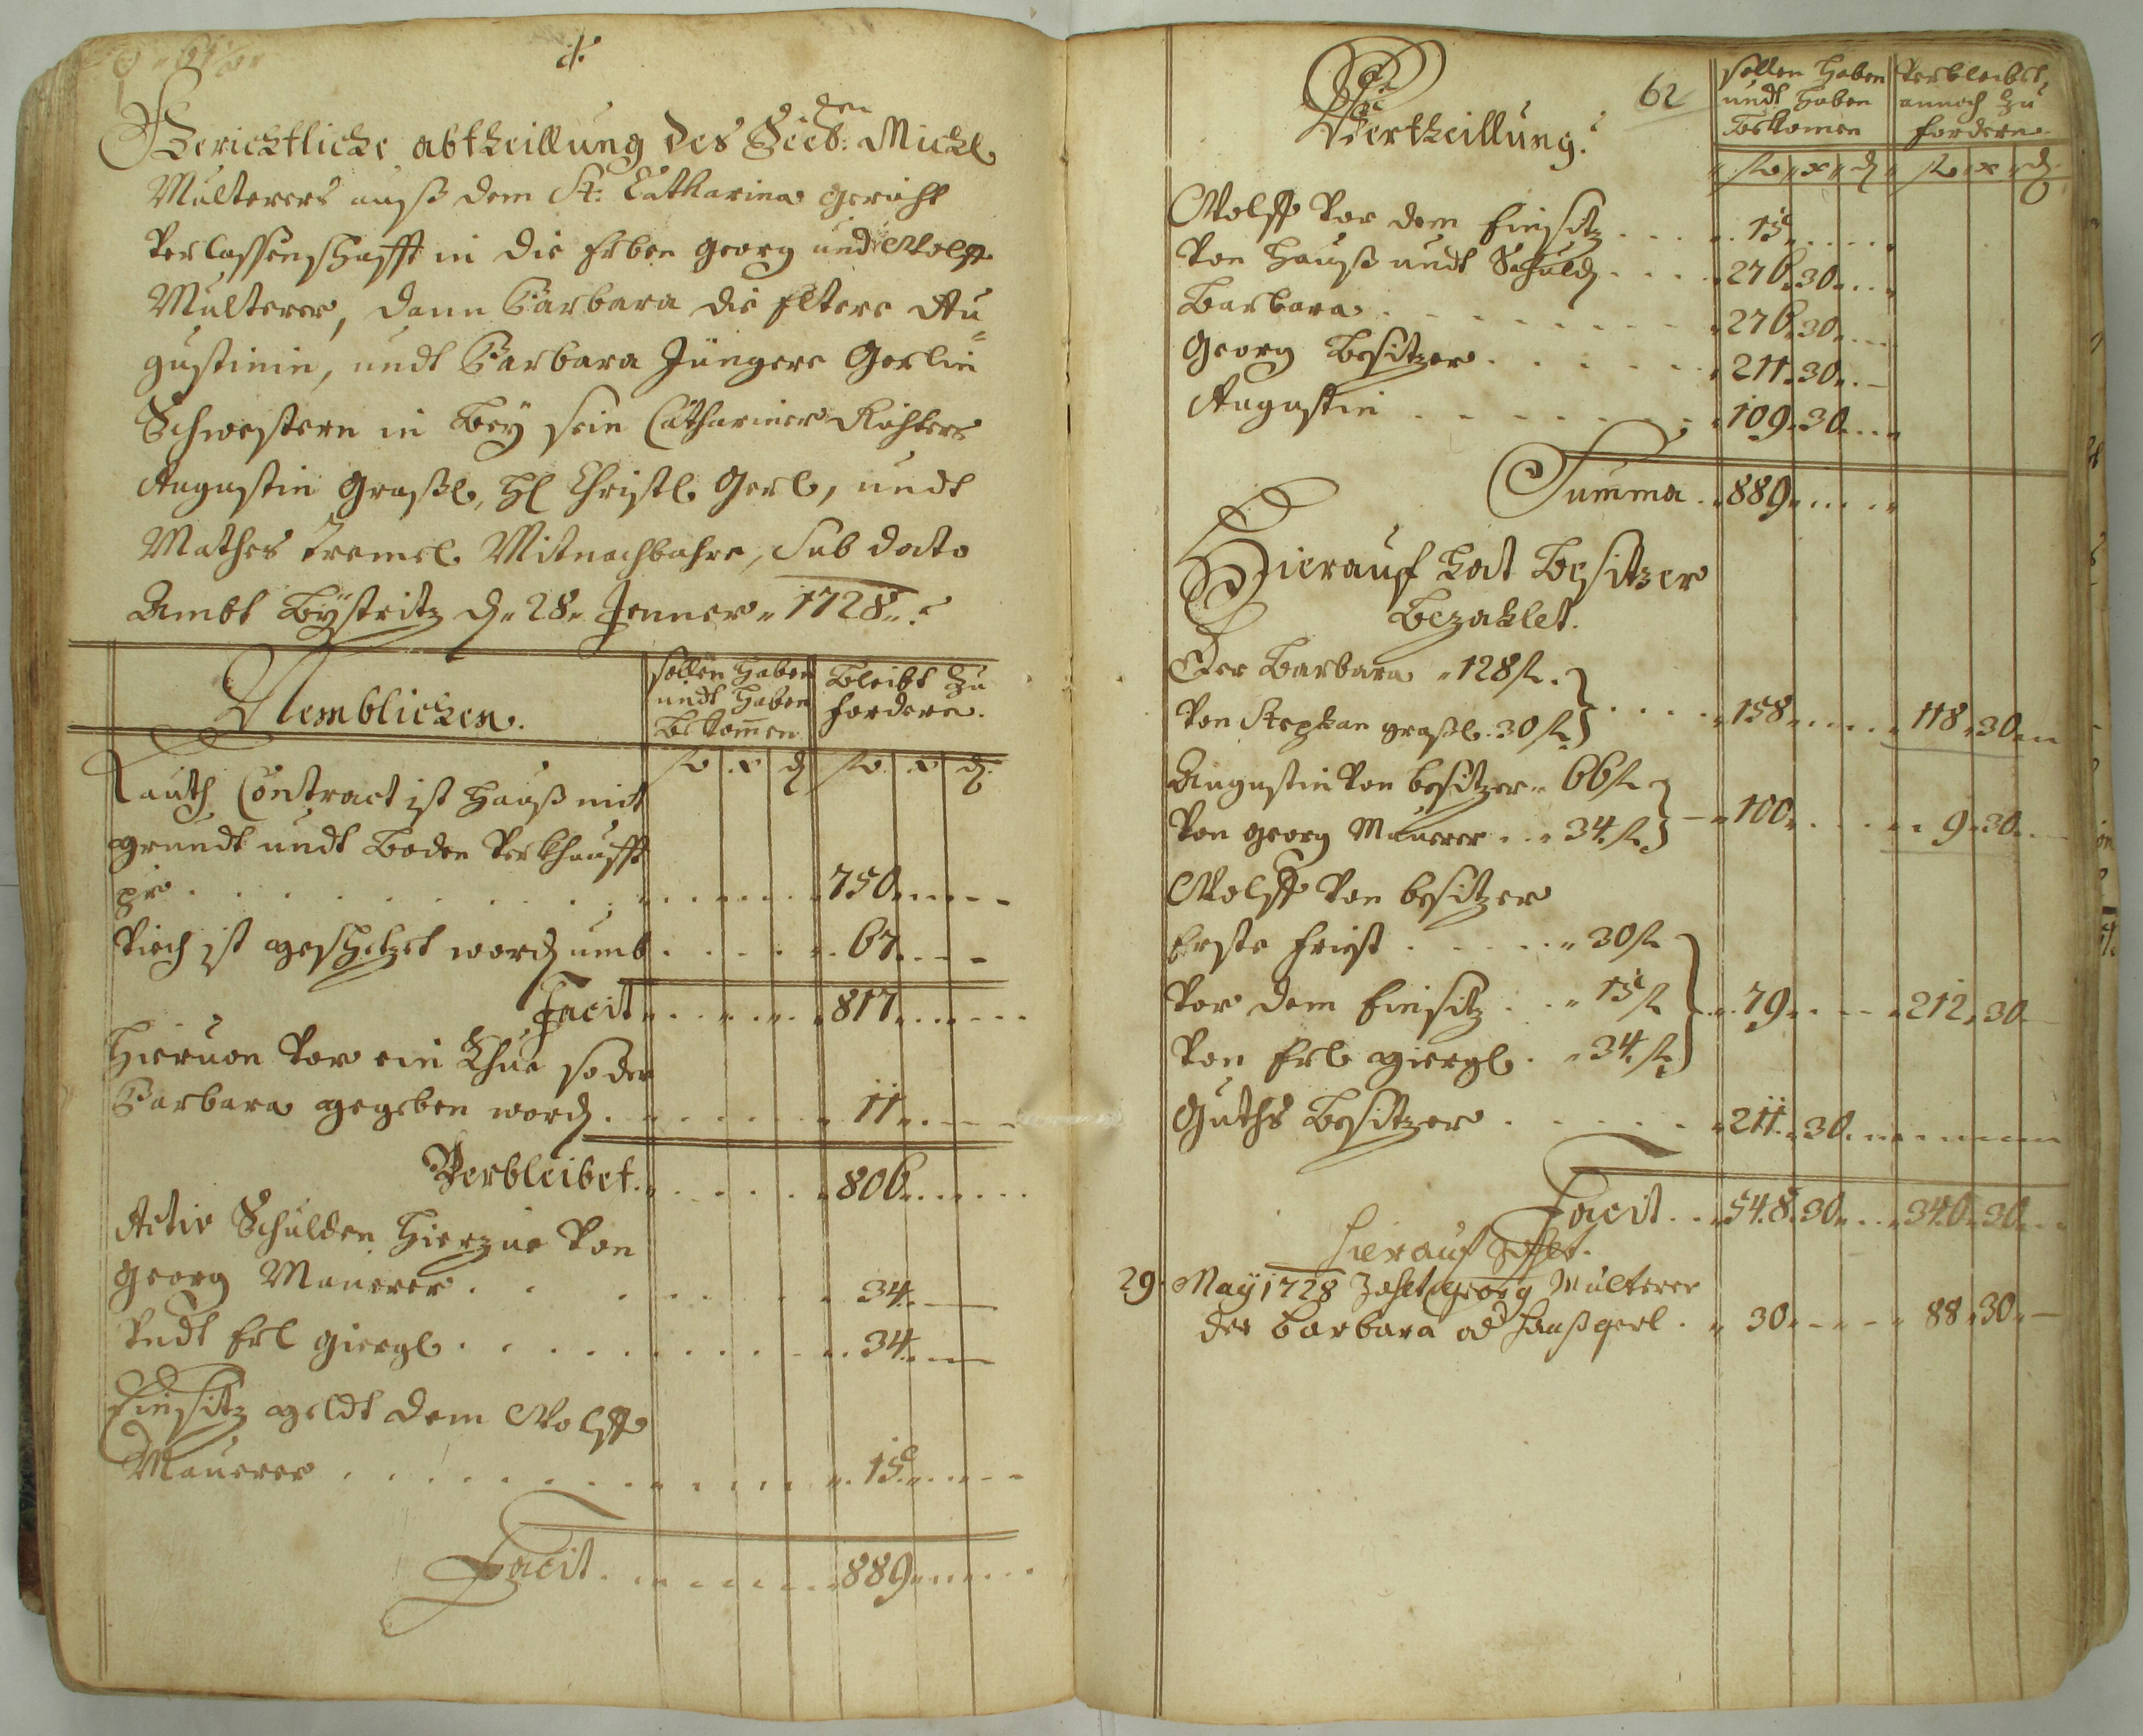 Gerichtliche abtheillung des Seel: Michl
Multerers auß dem St: Catharina gericht
Verlassenschafft in die Erben Georg und Wolff
Multerer, dann Barbara die Eltere Au-
gustinin, undt Barbara Jüngere Gerlin
Schwestern in Beÿ sein Cathariner Richters
Augustin Graßl, Christl Gerl, undt
Mathes Tremel Mitnachbahre, Sub dato
Ambt Bÿstritz d. 28. Jenner. 1728.
Nemblichen.
sollen haben undt haben Bekommen
Bleibt Zu fordern.
fl x d fl x d
Lauth Contract ist Hauß mit
grundt undt Boden Verkhaufft
pr . . . 750
Viech ist geschetzet word umb . . . 67
Facit . . . 817
Hieruon Vor ein Khüe so der
Barbara gegeben word . . . 11
Verbleibet . . . 806
Activ Schulden Hierzue Von
Georg Maurer . . . 34
Vndt Erl Giergl . . . 34
Einsitz geldt dem Wolff
Maurer . . . 15
Facit . . . 889
62
Vertheillung.
sollen haben undt haben Bekomen
Verbleibet annoch Zu fordern
fl x d fl x d
Wolff Vor dem Einsitz . . . 15
Von Hauß undt Schuld . . . 276 30
Barbara . . . 276 30
Georg Besitzer . . . 211 30
Augustin . . . 109 30
Summa . 889
Hierauf hat Besitzer
Bezahlet.
Der Barbara 128 fl.
Von Stephan graßl. 30 fl } . . . 158 . . . 118 30
Augustin Von besitzer 66 fl
Von Georg Maurer . . 34 fl } 100 . . . 9 30
Wolff Von besitzer
Erste frist . . . 30 fl
Vor dem Einsitz . . 15 fl } 79 . . . 212 30
Von Erl Giergl . 34 fl
Guths Besitzer . . . 211 30
Facit . . 548 30 . . 340 30
Hierauf
29. Maÿ 1728 Zahlt Georg Multerer
der Barbara od Hanß gerl . 30 . . . 88 30